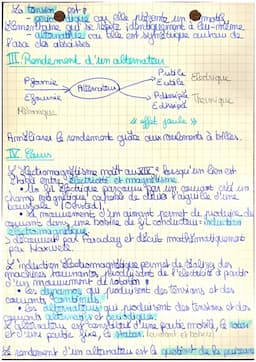 La tension est :
- périodique car elle présente un motif
élémentaire qui se répète identiquement à lui-même
- alternative car elle est symétrique autour de
l'axe des abscisses
III Rendement d'un alternateur
P fournie
E fournie
Mécanique
Alternateur
P utile
E utile
Electrique
P dissipée
E dissipée
Thermique
" effet joule "
Améliorer le rendement grâce aux roulements à billes.
IV Cours
L'électromagnétisme naît au XIXe lorsqu'un lien est
entre électricité et magnétisme
• Un fil électrique parcouru par un courant crée un
champ magnétique capable de dévier l'aiguille d'une
boussole (Oersted)
• Le mouvement d'un aimant permet de produire des
courants dans une bobine de fil conducteur : induction
électromagnétique
découvert par Faraday et décrit mathématiquement
par Maxwell.
L'induction électromagnétique permet de réaliser des
machines tournantes produisant de l'électricité à partir
d'un mouvement de rotation :
• les dynamos qui produisent des tensions et des
courants continus
• les alternateurs qui produisent des tensions et des
courants alternatifs et périodiques
L'alternateur est constitué d'une partie mobile, le rotor
et d'une partie fixe, le stator
Le rendement d'un alternateur est le quotient de la puissance